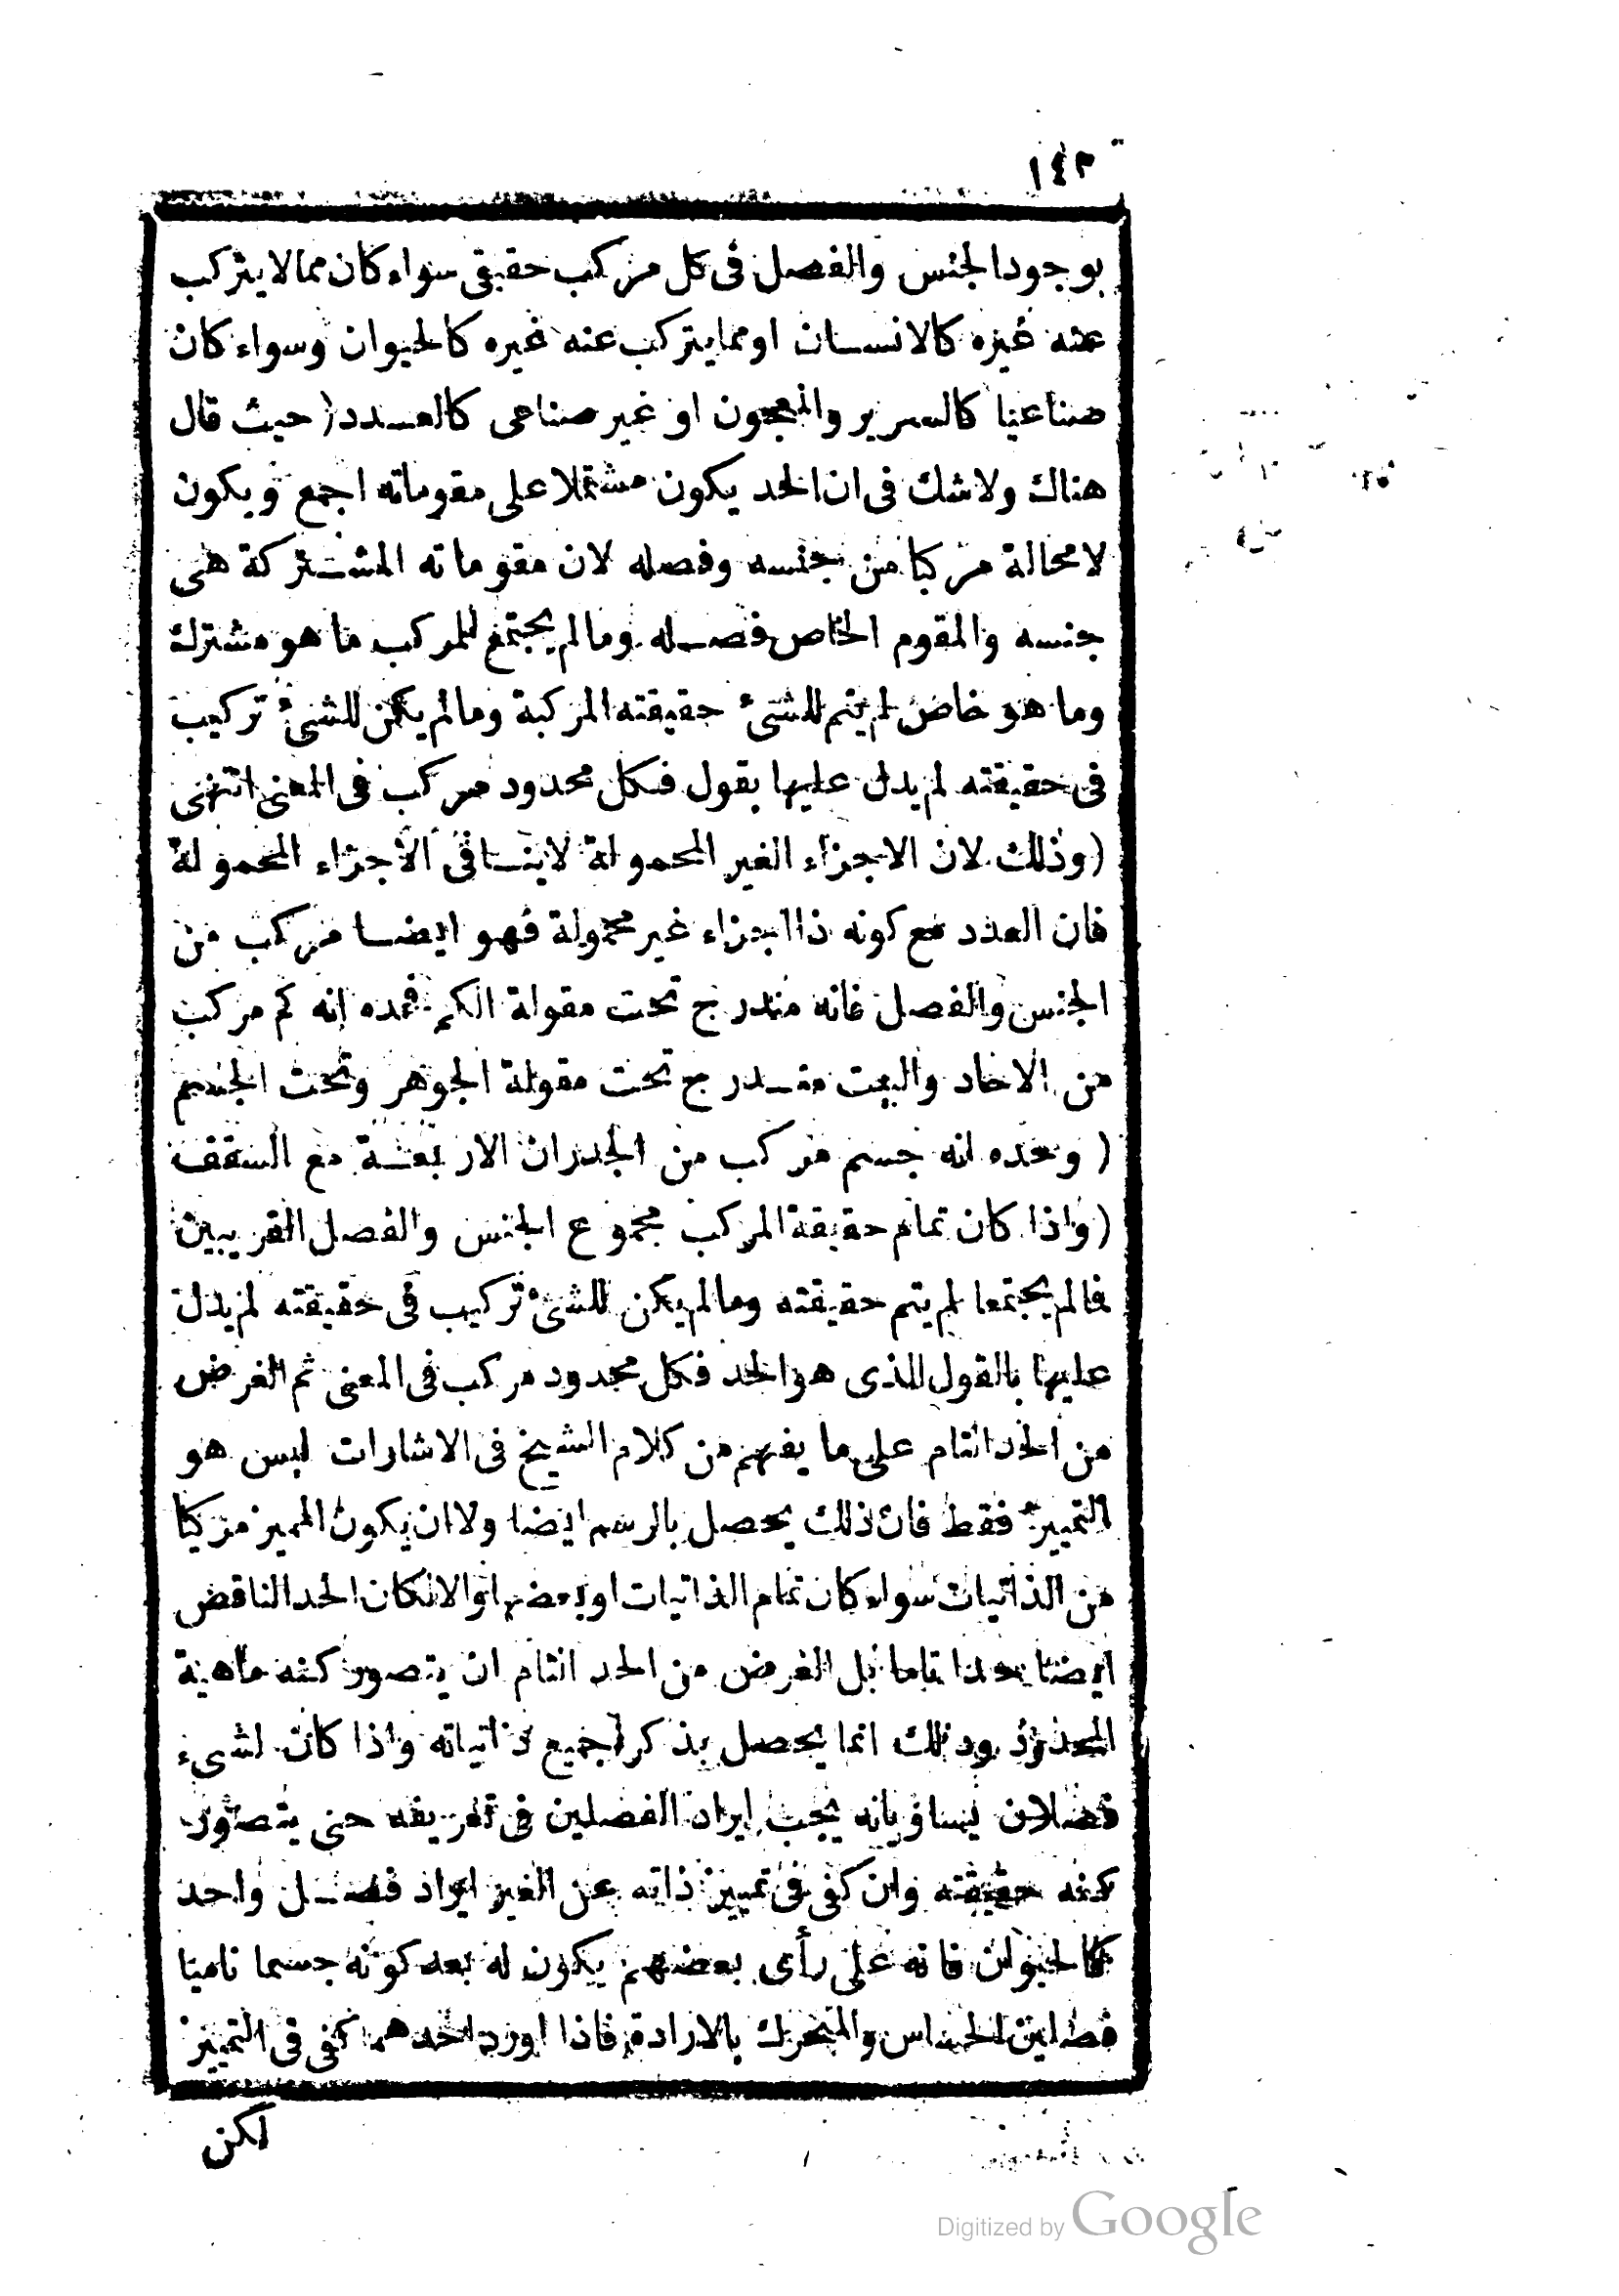 ١٤٣
بوجود الجنس والفصل فى كل مركب حقيقى سواء كان مما لا يتركب
عنه غيره كالانسان او مما يتركب عنه غيره كالحيوان وسواء كان
صناعيا كالسرير والمعجون او غير صناعى كالعدد ( حيث قال
هناك ولاشك فى ان الحد يكون مشتملا على مقوماته اجمع ويكون
لا محالة مركبا من جنسه وفصله لان مقوماته المشتركة هى
جنسه والمقوم الخاص فصله وما لم يجتمع للمركب ما هو مشترك
وما هو خاص لم يتم للشئ حقيقته المركبة وما لم يكن للشئ تركيب
فى حقيقته لم يدل عليها بقول فكل محدود مركب فى المعنى انتهى
( وذلك لان الاجزاء الغير المحمولة لا ينافى الاجزاء المحمولة
فان العدد مع كونه ذا اجزاء غير محمولة فهو ايضا مركب من
الجنس والفصل فانه مندرج تحت مقولة الكم فحده انه كم مركب
من الاحاد والبيت مندرج تحت مقولة الجوهر وتحت الجسم
( وحده انه جسم مركب من الجدران الاربعة مع السقف
( واذا كان تمام حقيقة المركب مجموع الجنس والفصل القريبين
فما لم يجتمعا لم يتم حقيقته وما لم يكن للشئ تركيب فى حقيقته لم يدل
عليها بالقول الذى هو الحد فكل محدود مركب فى المعنى ثم الغرض
من الحد التام على ما يفهم من كلام الشيخ فى الاشارات ليس هو
التمييز فقط فان ذلك يحصل بالرسم ايضا ولا ان يكون المميز مركبا
من الذاتيات سواء كان تمام الذاتيات او بعضها والا لكان الحد الناقص
ايضا حدا تاما بل الغرض من الحد التام ان يتصور كنه ماهية
المحدود وذلك انما يحصل بذكر جميع ذاتياته واذا كان لشىء
فصلان يساويانه يجب ايراد الفصلين فى تعريفه حتى يتصور
كنه حقيقته وان كفى فى تمييز ذاته عن الغير ايراد فصل واحد
كالحيوان فانه على رأى بعضهم يكون له بعد كونه جسما ناميا
فصلين الحساس والمتحرك بالارادة فاذا اورد احدهما كفى فى التمييز
لكن
Digitized by Google